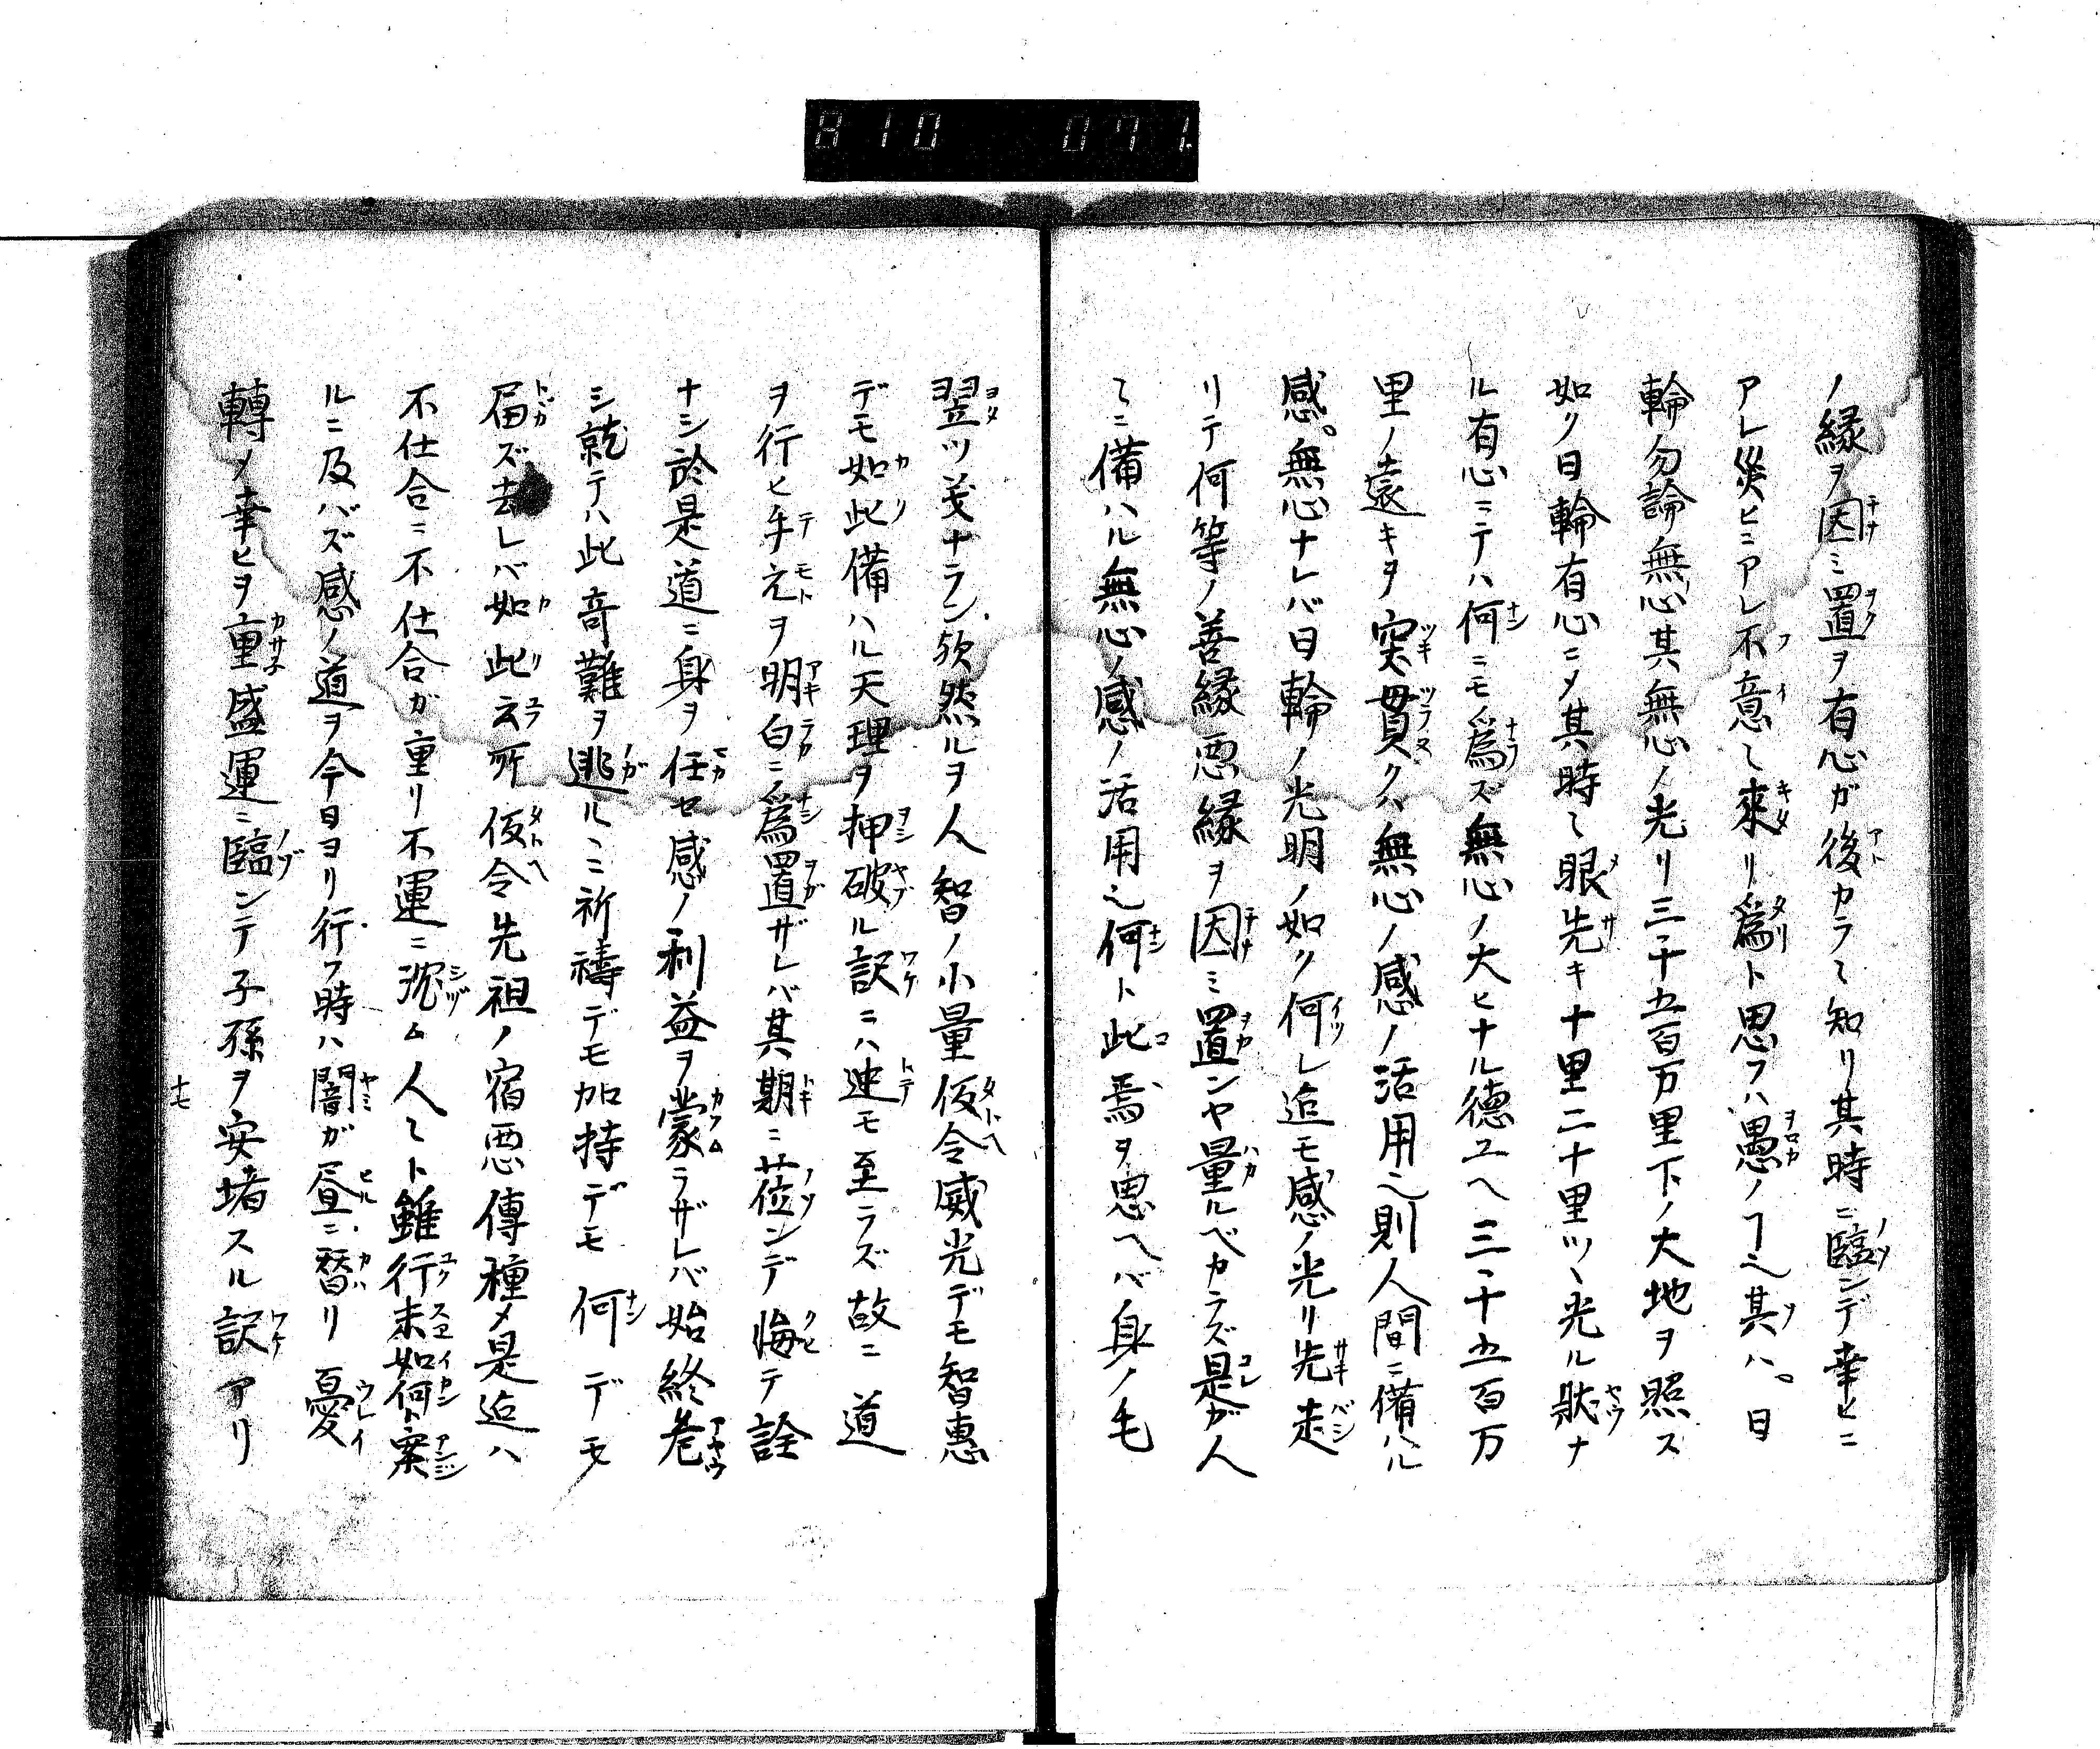 810 071.
ノ縁ヲ因ミ置ヲ有心ガ後カラ〻知リ其時ニ臨ンデ幸ヒニ
アレ災ヒニアレ不意〻來リ爲ト思フハ愚ノヿ也其ハ。日
輪勿論無心其無心ノ光リ三千五百万里下ノ大地ヲ照ス
如ク日輪有心ニメ其時〻眼先キ十里二十里ツヽ光ル狀ナ
ル有心ニテハ何ニモ爲ズ無心ノ大ヒナル德ユヘ三千五百万
里ノ遠キヲ突貫クハ無心ノ感ノ活用也則人間ニ備ハル
感。無心ナレバ日輪ノ光明ノ如ク何レ迄モ感ノ光リ先走
リテ何等ノ善縁悪縁ヲ因ミ置ンヤ量ルベカラズ是ガ人
〻ニ備ハル無心ノ感ノ活用也何ト此焉ヲ思ヘバ身ノ毛
翌ツ茂ナラン欤然ルヲ人智ノ小量仮令威光デモ智惠
デモ如此備ハル天理ヲ押破ル訳ニハ迚モ至ラズ故ニ道
ヲ行ヒ手元ヲ明白ニ爲置ザレバ其期ニ莅ンデ悔テ詮
ナシ於是道ニ身ヲ任セ感ノ利益ヲ蒙ラザレバ始終危
シ就テハ此奇難ヲ逃ルヽニ祈禱デモ加持デモ何デモ
届ズ去レバ如此云所仮令先祖ノ宿悪傳種メ是迄ハ
不仕合ニ不仕合ガ重リ不運ニ沈ム人〻ト雖行末如何ト案
ルニ及バズ感ノ道ヲ今日ヨリ行フ時ハ闇ガ昼ニ替リ憂
轉メ幸ヒヲ重盛運ニ臨ンテ子孫ヲ安堵スル訳アリ
十七